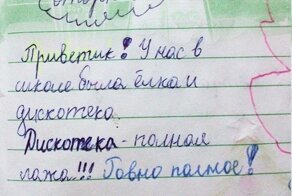 Приветик! У нас в
школе была ёлка и
дискотека.
Дискотека - полная
лажа!!! Говно полное!